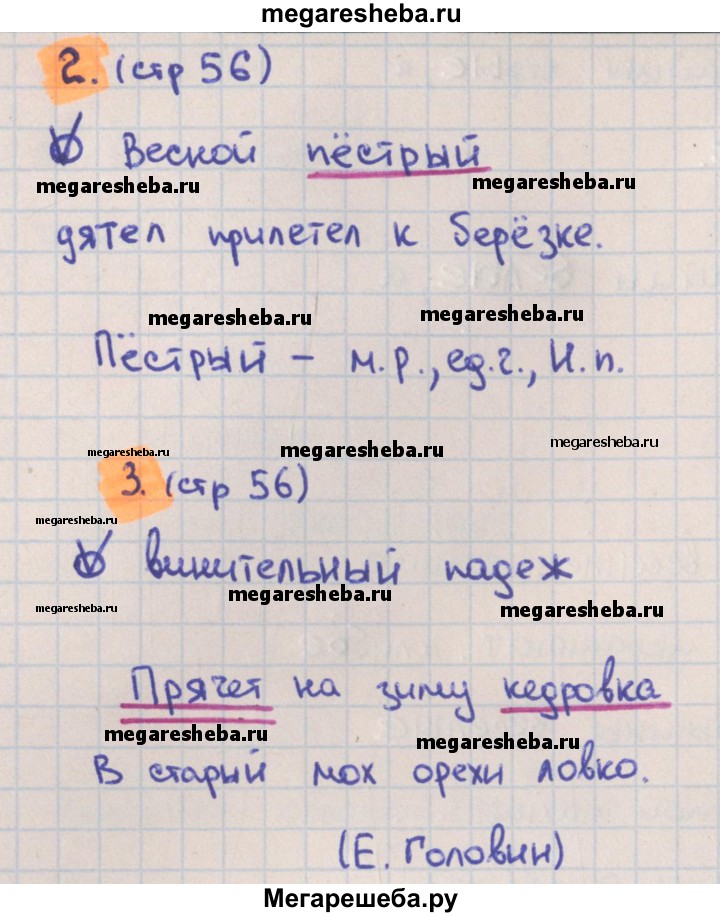 megaresheba.ru
2. (стр 56)
Веской пёстрый
megaresheba.ru megaresheba.ru
дятел прилетел к берёзке.
megaresheba.ru megaresheba.ru
Пёстрый – м.р., ед.ч., И.п.
megaresheba.ru megaresheba.ru megaresheba.ru
3. (стр 56)
megaresheba.ru
винительный падеж
megaresheba.ru megaresheba.ru megaresheba.ru
Прячет на зиму кедровка
megaresheba.ru megaresheba.ru
В старый мох орехи ловко.
(Е. Головин)
Мегарешеба.ру